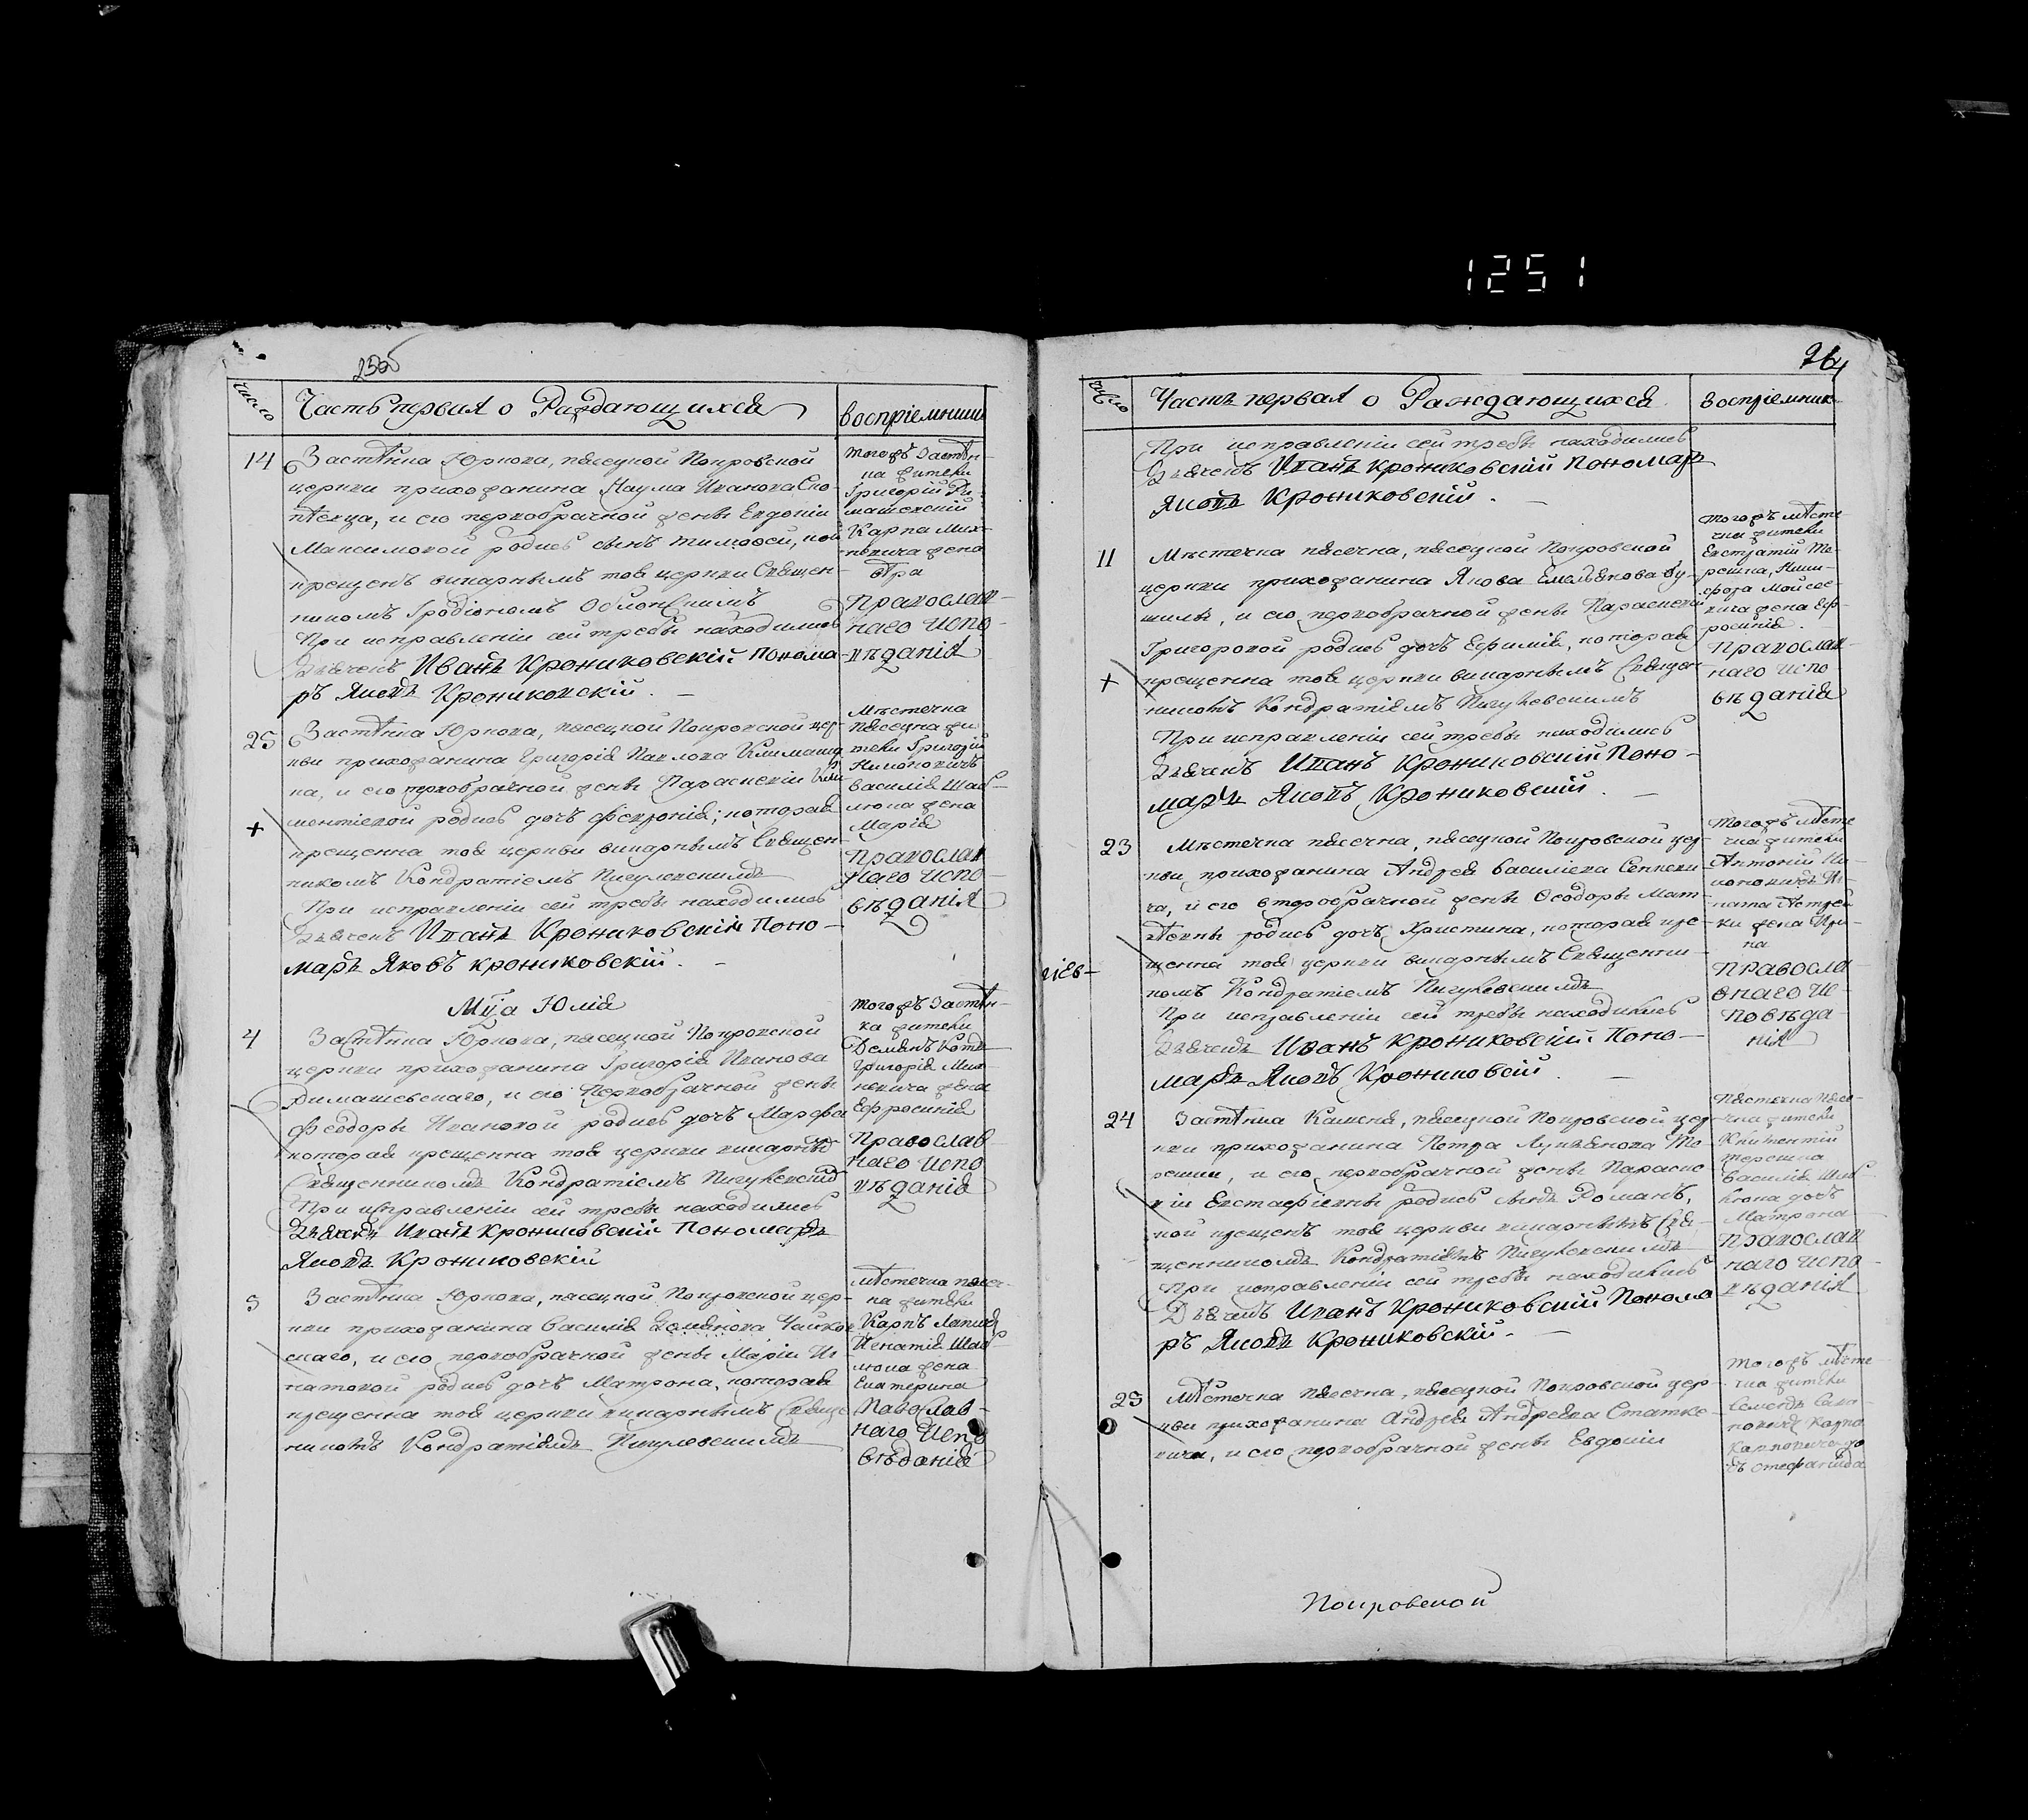 1251
число
Часть первая о Раждающихся
воспріемники
14
Застѣнка Юркова, пясецкой Покровской
церкви прихожанина Наума Иванова
и его первобрачной жены Евдокіи
Максимовой родился сынъ Тимофей, кой
крещенъ викарнымъ тоя церкви Священ-
никомъ Іродіономъ
При исправленіи сей требы находились
Дьячекъ Иванъ Крониковскій Понома-
ръ Яковъ Крониковскій.
тогожъ Застѣн-
ка жители
Григорій Ри-
машевскій
Карпа Мих-
жена
Православ-
наго испо-
вѣданія
25
Застѣнка Юркова, пясецкой Покровской цер-
кви прихожанина Григорія Павлова
и его первобрачной жены Параскевіи Кли-
ментіевой родись дочь Февронія; которая
крещенна тоя церкви викарнымъ Священ-
никомъ Кондратіемъ Пигулевскимъ
При исправленіи сей требы находились
Дьячекъ Иванъ Крониковскій Поно-
марь Яковъ Крониковскій.
Мѣстечка
Пясечна жи-
тели Григорій
Василія Шаб-
люка жена
Марія
Православ
наго испо-
вѣданія
Мца Юлія
4
Застѣнка Юркова, пясецкой Покровской
церкви прихожанина Григорія Иванова
Римашевскаго, и его Первобрачной жены
Феодоры Ивановой родись дочь Марфа
которая крещенна тоя церкви викарнымъ
Священникомъ Кондратіемъ Пигулевскимъ
При исправленіи сей требы находились
Дьячекъ Иванъ Крониковскій Пономарь
Яковъ Крониковскій
тогожъ Застѣн-
ка жители
Демянъ
Григорія Мих
жена
Ефросинія
Православ
наго испо
вѣданія
5
Застѣнка Юркова, пясецкой Покровской цер-
кви прихожанина Василія Чайков
скаго, и его первобрачной жены Маріи Иг
натовой родись дочь Матрона, которая
крещенна тоя церкви викарнымъ Священ
никомъ Кондратіемъ Пигулевскимъ
мѣстечка пясеч-
на жители
Карпъ
Игнатія Шаб-
люка жена
Екатерина
Павославъ-
наго Испо
вѣданія
26
число
Часть первая о Раждающихся
воспріемник
При исправленіи сей требы находились
Дьячекъ Иванъ Крониковскій Пономарь
Яковъ Крониковскій.
11
Мѣстечка пясечна, пясецкой Покровской
церкви прихожанина Якова Емельянова
и его первобрачной жены Параскевіи
Григоровой родись дочь Ефимія, которая
крещенна тоя церкви викарнымъ Священ
никомъ Кондратіемъ Пигулевскимъ
При исправленіи сей требы находились
Дьячекъ Иванъ Крониковскій Поно-
марь Яковъ Крониковскій.
тогожъ мѣсте-
чка жители
Евстратій Те-
решка, Ники-
фора Мойсее-
вича жена Еф-
росинія.
Православ-
наго испо
вѣданія
23
Мѣстечка пясечна, пясецкой Покровской цер
кви прихожанина Андрея Василіева
и его второбрачной жены Феодоры Мат-
родись дочь Христина, которая кре-
щенна тоя церкви викарнымъ Священни-
комъ Кондратіемъ Пигулевскимъ
При исправленіи сей требы находились
Дьячекъ Иванъ Крониковскій Поно-
марь Яковъ Крониковскій.
тогожъ мѣсте
чка жители
Антоній
жена Ири-
на
Правосла-
внаго Ис-
повѣда-
нія
24
Застѣнка Каменя, пясецкой Покровской цер
кви прихожанина Петра Лукьянова Те-
решки, и его первобрачной жены Параске
віи Евстафіевны родись сынъ Романъ,
кой крещенъ тоя церкви викарнымъ Свя-
щенникомъ Кондратіемъ Пигулевскимъ
При исправленіи сей требы находились
Дьячекъ Иванъ Крониковскій Понома
ръ Яковъ Крониковскій.
Мѣстечка Пясе-
чна жители
Терешка
Василія Шаб-
люка дочь
Матрона
Православ
наго испо-
вѣданія
25
Мѣстечка пясечна, пясецкой Покровской цер-
кви прихожанина Андрея Андреева Статке-
вича, и его первобрачной жены Евдокіи
тогожъ мѣсте
чка жители
Семенъ
Карпа
до
чь Стефанида
Покровской